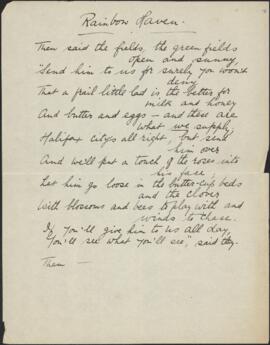 Rainbow Haven.
Then said the fields, the green fields
open and sunny
"Send him to us for surely you won't
deny
That a frail little lad is the better for
milk and honey
And butter and eggs — and these are
what we supply;
Halifax city's all right, but send
him over
And we'll put a touch of the rose into
his face,
Let him go loose in the butter-cup beds
and the clover
With blossoms and bees to play with and
winds to chase.
If you'll give him to us all day,
You'll see what you'll see", said they.
Then —